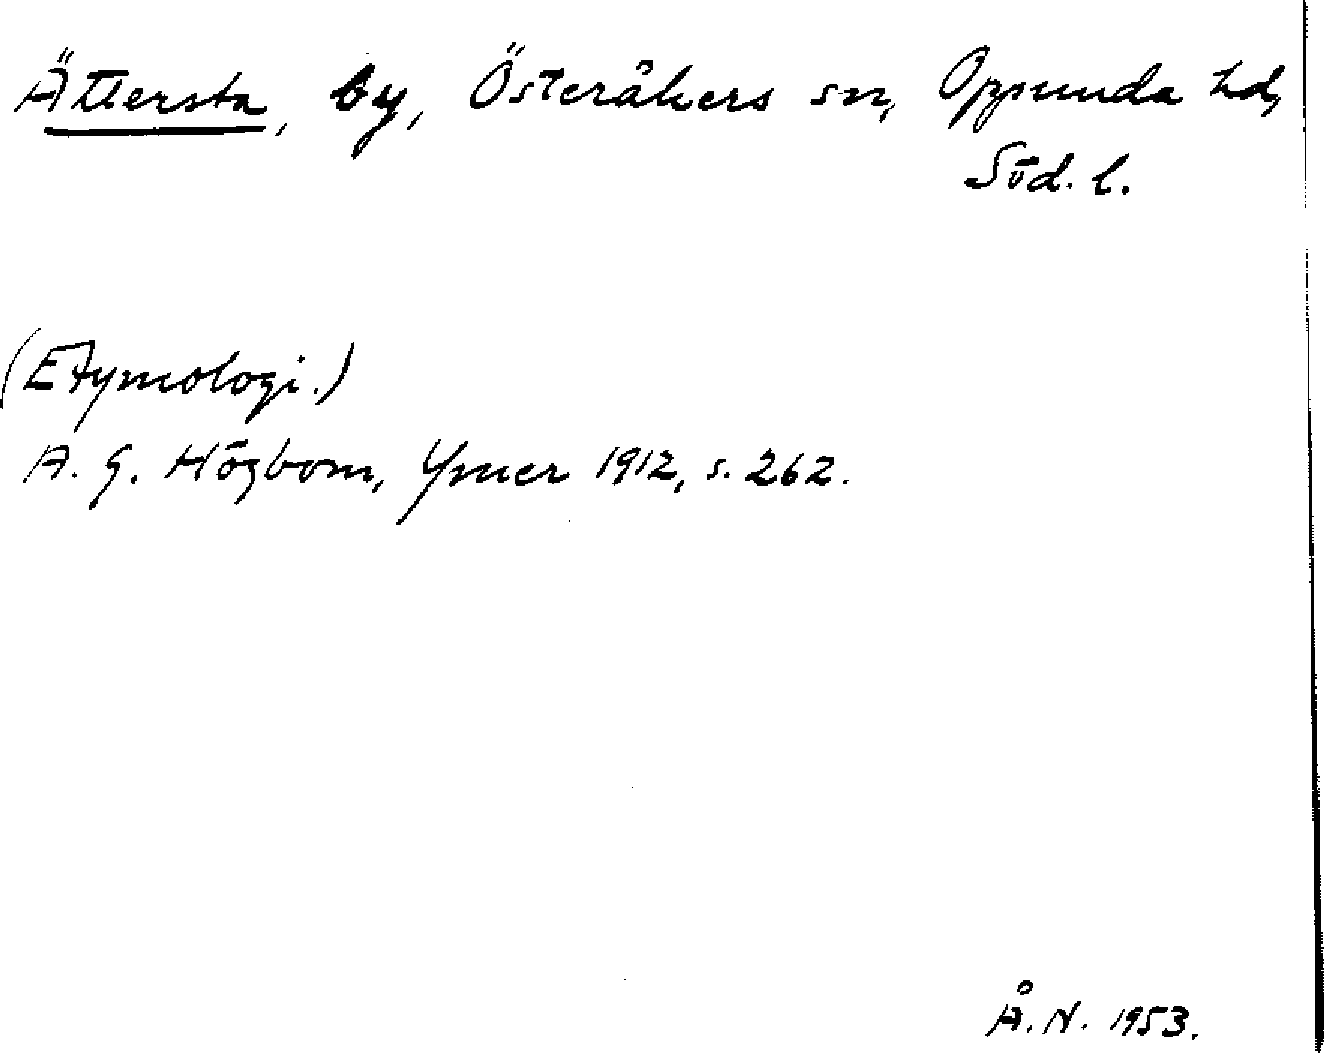 Ättersta, by, Österåkers sn, Oppunda hd,
Söd. l.
(Etymologi.)
A. G. Högbom, Ymer 1912, s. 262.
Å. N. 1953.